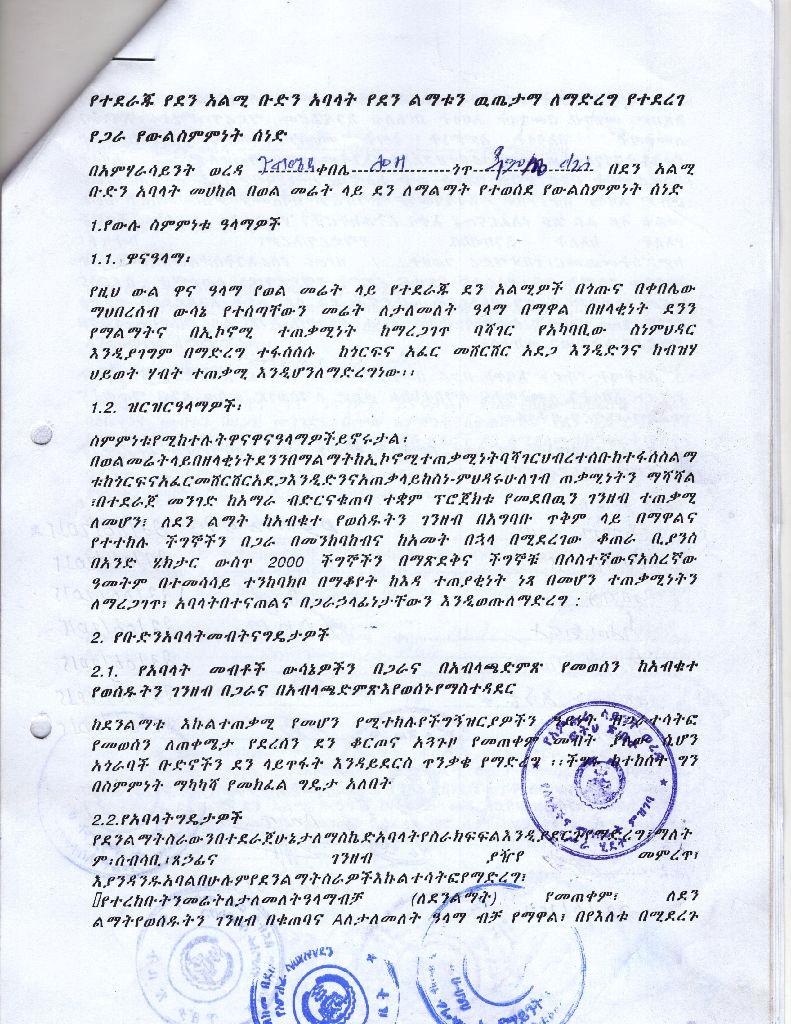 የተደራጁ የደን አልሚ ቡድን አባላት የደን ልማቱን ዉጤታማ ለማድረግ የተደረገ
የጋራ የውልስምምነት ሰነድ
በአምሃራሳይንት ወረዳ ቀበሌ ጎጥ በደን አልሚ
ቡድን አባላት መሀከል በወል መሬት ላይ ደን ለማልማት የተወሰደ የውልስምምነት ሰነድ
1.የውሉ ስምምነቱ ዓላማዎች
1.1. ዋናዓላማ፡
የዚህ ውል ዋና ዓላማ የወል መሬት ላይ የተደራጁ ደን አልሚዎች በጎጡና በቀበሌው
ማህበረሰብ ውሳኔ የተሰጣቸውን መሬት ለታለመለት ዓላማ በማዋል በዘላቂነት ደንን
የማልማትና በኢኮኖሚ ተጠቃሚነት ከማረጋገጥ ባሻገር የአካባቢው ስነምህዳር
እንዲያገግም በማድረግ ተፋሰሰሱ ከጎርፍና አፈር መሸርሸር አደጋ እንዲድንና ከብዝሃ
ህይወት ሃብት ተጠቃሚ እንዲሆንለማድረግነው፡፡
1.2. ዝርዝርዓላማዎች፡
ስምምነቱየሚከተሉትዋናዋናዓላማዎችይኖሩታል፡
በወልመሬትላይበዘላቂነትደንንበማልማትከኢኮኖሚተጠቃሚነትባሻገርህብረተሰቡከተፋሰስልማ
ቱከጎርፍናአፈርመሸርሸርአደጋእንዲድንናአጠቃላይከስነ-ምህዳሩሁለገብ ጠቃሚነትን ማሻሻል
፣በተደራጀ መንገድ ከአማራ ብድርናቁጠባ ተቋም ፕሮጀክቱ የመደበዉን ገንዘብ ተጠቃሚ
ለመሆን፣ ለደን ልማት ከአብቁተ የወሰዱትን ገንዘብ በአግባቡ ጥቅም ላይ በማዋልና
የተተከሉ ችግኞችን በጋራ በመንከባከብና ከአመት በኋላ በሚደረገው ቆጠራ ቢያንስ
በአንድ ሄክታር ውስጥ 2000 ችግኞችን በማጽደቅና ችግኙቹ በሶስተኛውናአስረኛው
ዓመትም በተመሳሳይ ተንከባክቦ በማቆየት ከእዳ ተጠያቂነት ነጻ በመሆን ተጠቃሚነትን
ለማረጋገጥ፣ አባላትበተናጠልና በጋራኃላፊነታቸውን እንዲወጡለማድረግ :
2. የቡድንአባላትመብትናግዴታዎች
2.1. የአባላት መብቶች ውሳኔዎችን በጋራና በአብላጫድምጽ የመወሰን ከአብቁተ
የወሰዱትን ገንዘብ በጋራና በአብላጫድምጽእየወሰኑየማስተዳደር
ከደንልማቱ እኩልተጠቃሚ የመሆን የሚተከሉየችግኝዝርያዎችን
የመወሰን ለጠቀሜታ የደረሰን ደን ቆርጦና አጓጉዞ የመጠቀም መብት ያለው ሲሆን
አጎራባች ቡድኖችን ደን ላይጥፋት እንዳይደርስ ጥንቃቄ የማድረግ ፡፡ችግሩ ከተከሰተ ግን
በስምምነት ማካካሻ የመክፈል ግዴታ አለበት
2.2.የአባላትግዴታዎች
የደንልማትስራውንበተደራጀሁኔታለማስኬድአባላትየስራክፍፍልእንዲያደርጉየማድረግ፣ማለት
ም፡ሰብሳቢ፣ጸኃፊና ገንዘብ ያዥየ መምረጥ፣
እያንዳንዱአባልበሁሉምየደንልማትስራዎችእኩልተሳትፎየማድረግ፣
የተረከቡትንመሬትለታለመለትዓላማብቻ (ለደንልማት) የመጠቀም፣ ለደን
ልማትየወሰዱትን ገንዘብ በቁጠባና Aለታለመለት ዓላማ ብቻ የማዋል፣ በየእለቱ በሚደረጉ